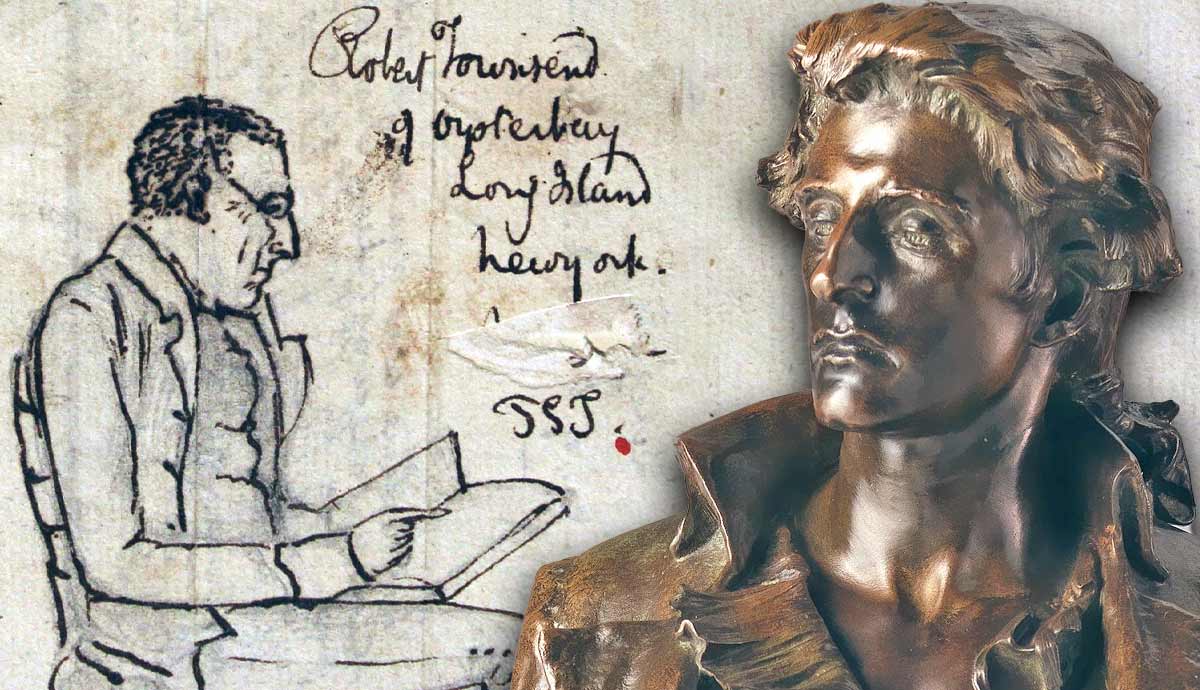 Robert Townsend
of oysterbay
Long Island
newyork.